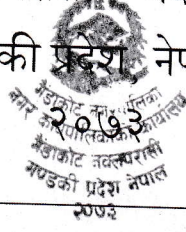 की प्रदेश, नेप
गैंडाकोट नगरपालिका
नगर कार्यपालिकाको कार्यालय
२०७३
गैंडाकोट नवलपरासी
गण्डकी प्रदेश नेपाल
२०७३